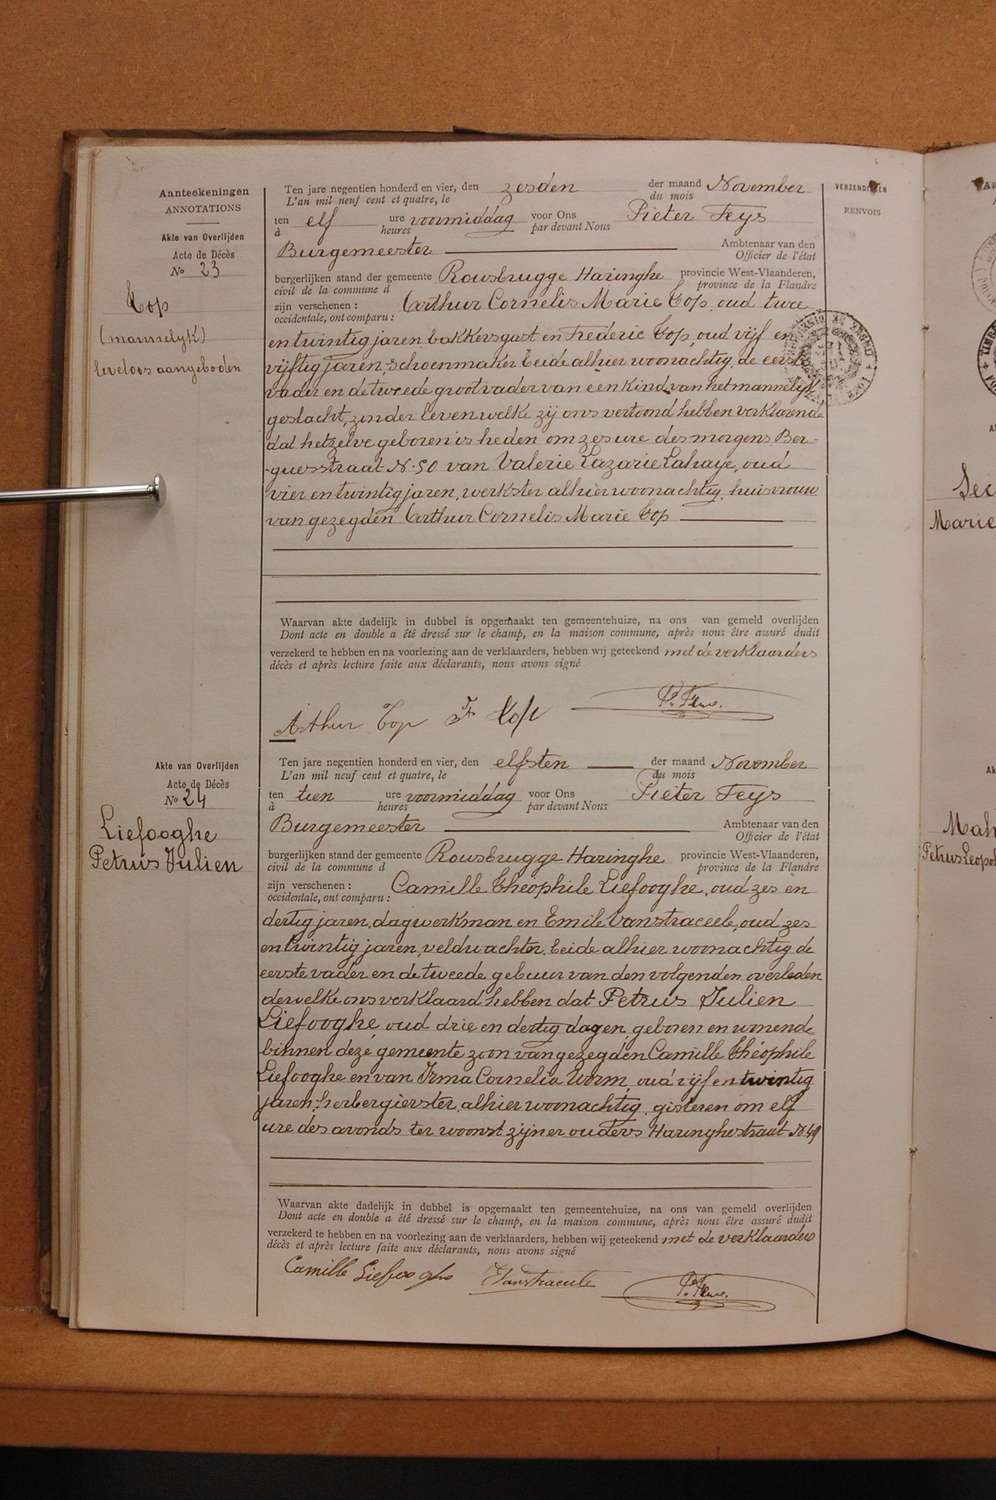 Aanteekeningen
ANNOTATIONS
Akte van Overlijden
Acte de Décès
No 23
Cop
(mannelijk)
leveloos aangeboden
Ten jare negentien honderd en vier, den zesden der maand November
L'an mil neuf cent et quatre, le du mois
ten elf ure voormiddag voor Ons Pieter Feys
à heures par devant Nous
Burgemeester Ambtenaar van den
Officier de l'état
burgerlijken stand der gemeente Rousbrugge Haringhe provincie West-Vlaanderen,
civil de la commune d province de la Flandre
zijn verschenen : Arthur Cornelis Marie Cop, oud twee
occidentale, ont comparu :
en twintig jaren bakkersgast en Frederic Cop, oud vijf en
vijftig jaren, schoenmaker beide alhier woonachtig, de eerste
vader en de tweede grootvader van een kind van het mannelijk
geslacht, zonder leven welke zij ons vertoond hebben verklarende
dat hetzelve geboren is heden om zes ure des morgens Ber-
-guesstraat N. 50 van Valerie Lazarie Lahaye, oud
vier en twintig jaren, werkster alhier woonachtig, huisvrouw
van gezegden Arthur Cornelis Marie Cop
Waarvan akte dadelijk in dubbel is opgemaakt ten gemeentehuize, na ons van gemeld overlijden
Dont acte en double a été dressé sur le champ, en la maison commune, après nous être assuré dudit
verzekerd te hebben en na voorlezing aan de verklaarders, hebben wij geteekend met de verklaarders
décès et après lecture faite aux déclarants, nous avons signé
Arthur Cop Fr Cop P. Feys.
Akte van Overlijden
Acte de Décès
No 24
Liefooghe
Petrus Julien
Ten jare negentien honderd en vier, den elfsten der maand November
L'an mil neuf cent et quatre, le du mois
ten tien ure voormiddag voor Ons Pieter Feys
à heures par devant Nous
Burgemeester Ambtenaar van den
Officier de l'état
burgerlijken stand der gemeente Rousbrugge Haringhe provincie West-Vlaanderen,
civil de la commune d province de la Flandre
zijn verschenen : Camille Théophile Liefooghe, oud zes en
occidentale, ont comparu :
dertig jaren, dagwerkman en Emile Vanstraceele, oud zes
en twintig jaren, veldwachter, beide alhier woonachtig de
eerste vader en de tweede gebuur van den volgenden overleden
dewelke ons verklaard hebben dat Petrus Julien
Liefooghe, oud drie en dertig dagen, geboren en wonende
binnen deze gemeente zoon van gezegden Camille Théophile
Liefooghe en van Irma Cornelia Worm, oud vijf en twintig
jaren, herbergierster, alhier woonachtig, gisteren om elf
ure des avonds ter woonst zijner ouders Haringhestraat N. 49
Waarvan akte dadelijk in dubbel is opgemaakt ten gemeentehuize, na ons van gemeld overlijden
Dont acte en double a été dressé sur le champ, en la maison commune, après nous être assuré dudit
verzekerd te hebben en na voorlezing aan de verklaarders, hebben wij geteekend met de verklaarders
décès et après lecture faite aux déclarants, nous avons signé
Camille Liefooghe EVanstraceele P. Feys.
RENVOIS
Marie
Mah
Petrus Leopol